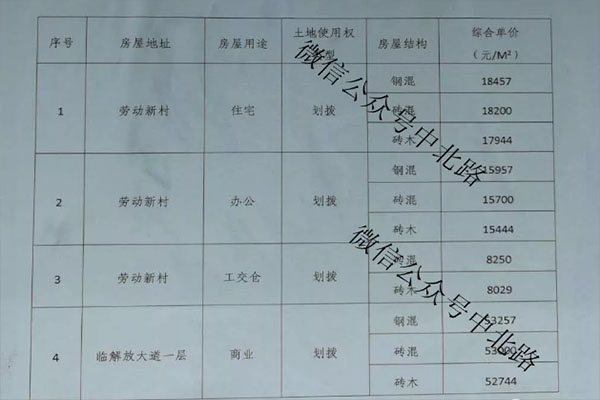 序号 房屋地址 房屋用途 土地使用权 房屋结构 综合单价
型 (元/M²)
1 劳动新村 住宅 划拨 钢混 18457
砖混 18200
砖木 17944
2 劳动新村 办公 划拨 钢混 15957
砖混 15700
砖木 15444
3 劳动新村 工交仓 划拨 混 8250
砖木 8029
4 临解放大道一层 商业 划拨 钢混 53257
砖混
砖木 52744
微信公众号中北路
微信公众号中北路